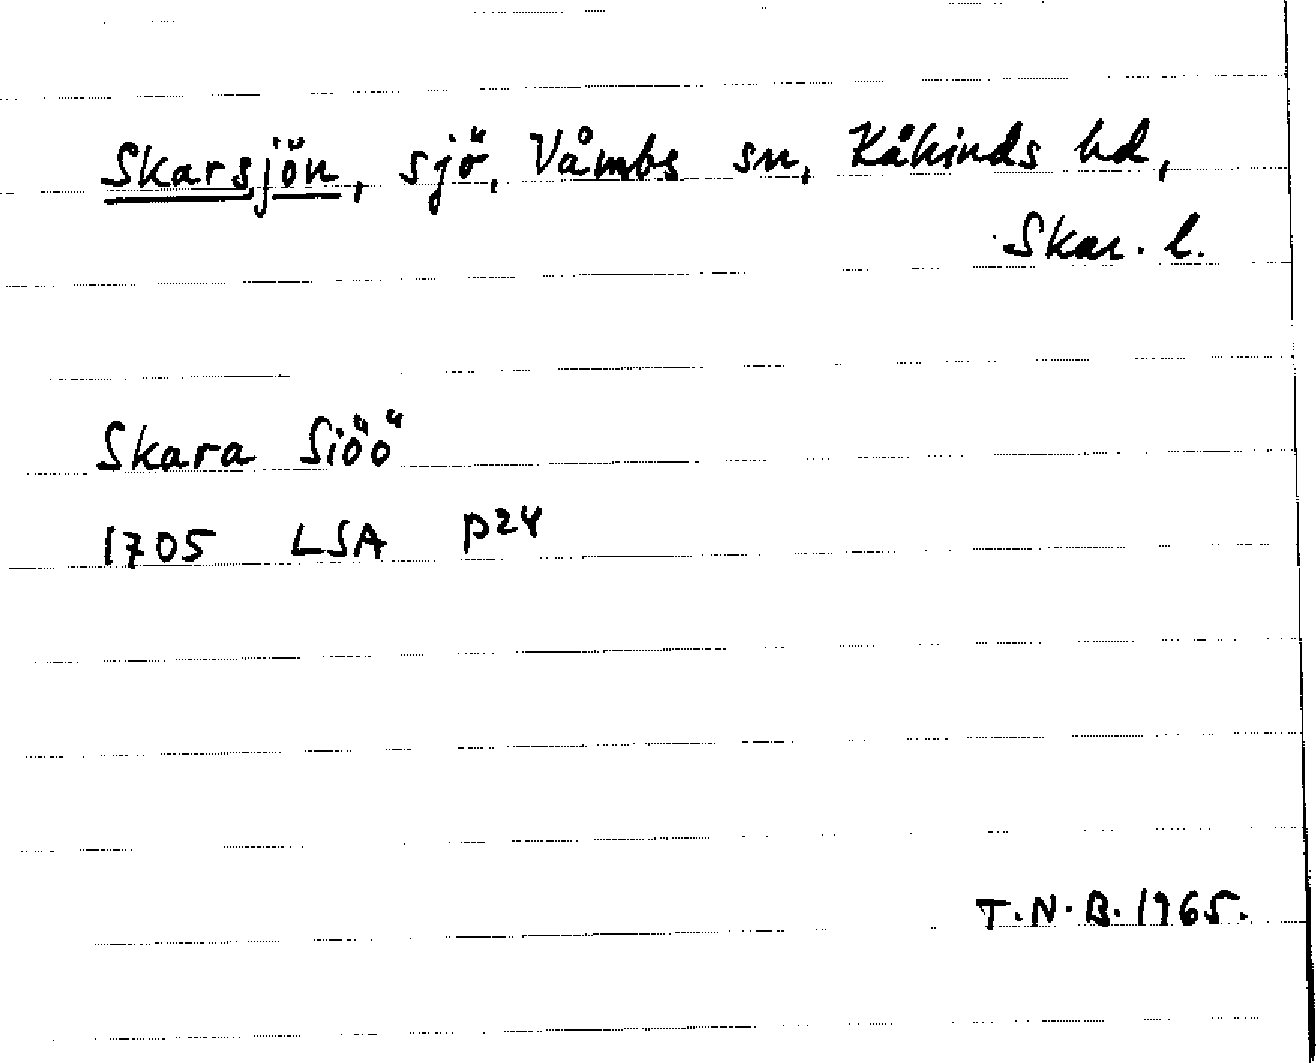 Skarsjön, sjö, Våmbs sn, Kåkinds hd,
Skar. l.
Skara Siöö
1705 LSA P24
T.N.B. 1965.